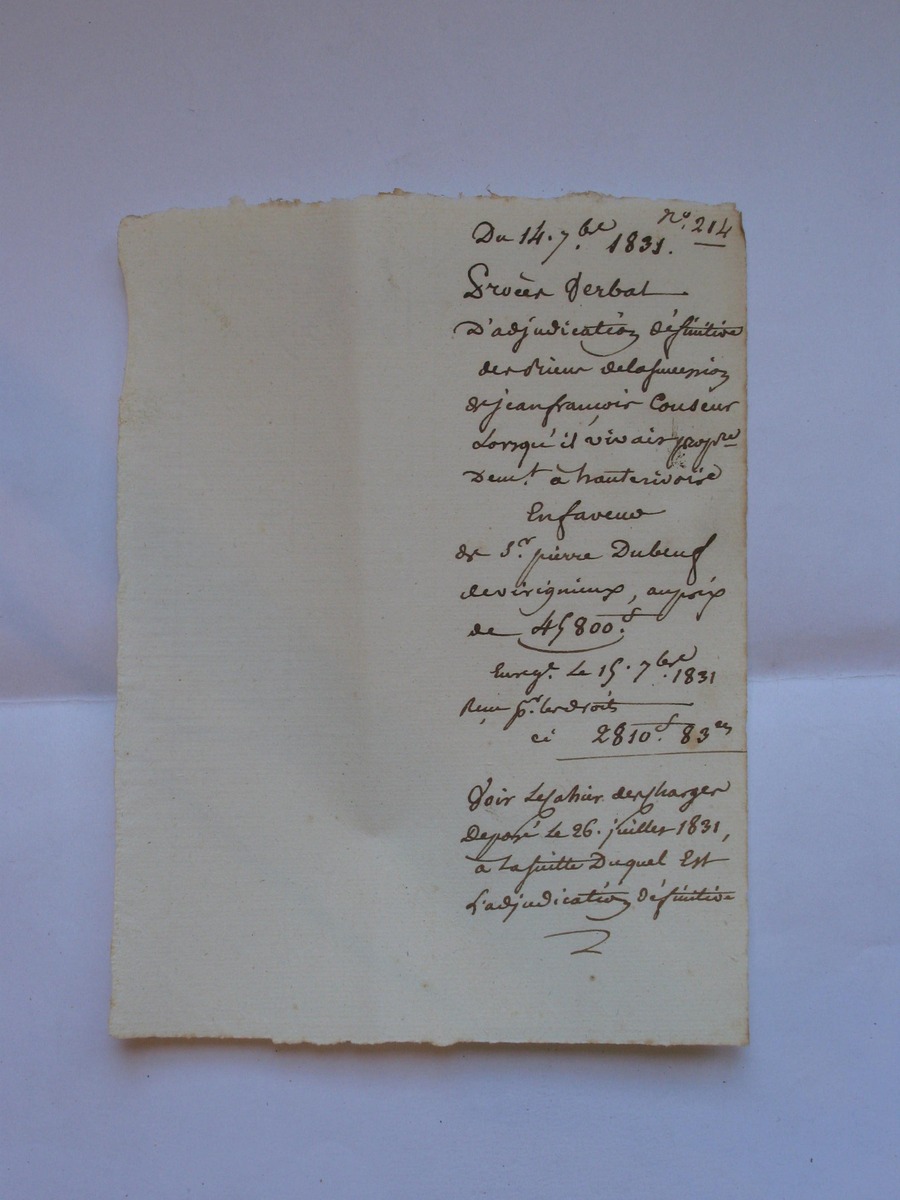 N.° 214
Du 14. 7.bre 1831.
Procès Verbal
D'adjudication définitive
des Biens de la succession
de jean françois Couseur
Lorsqu'il vivait propre
Dem.t à hauterivoire
En faveur
de S.r pierre Dubeuf
de virigneux, au prix
de 45800.f
Enreg.t Le 15. 7.bre 1831
Reçu p.r les droits
ci 2810.f 83 ces
Voir Le Cahier des Charges
Déposé Le 26. juillet 1831,
à la suitte Duquel Est
L'adjudication définitive